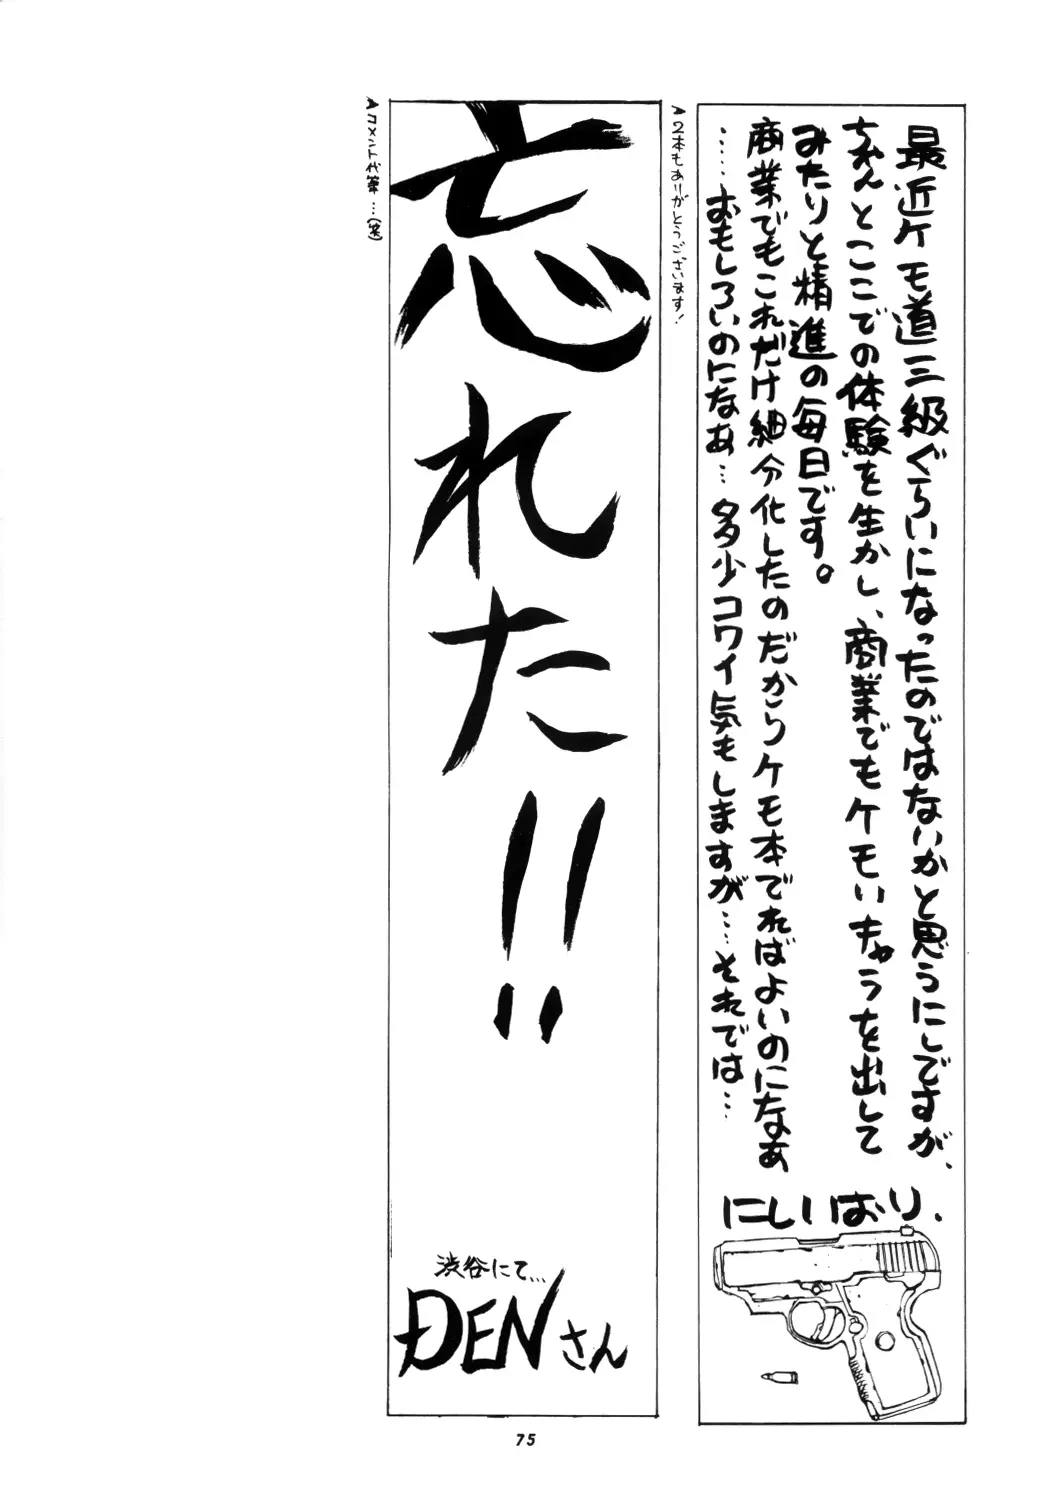 最近ケモ道三級ぐらいになったのではないかと思うにしですが、
ちゃんとここでの体験を生かし、商業でもケモいキャラを出して
みたりと精進の毎日です。
商業でもこれだけ細分化したのだからケモ本でればよいのになぁ
……おもしろいのになぁ…多少コワイ気もしますが……それでは…
にしいはり、
▲2本もありがとうございます!
忘れた!!
渋谷にて…
DENさん
▲コメント代筆…(笑)
75